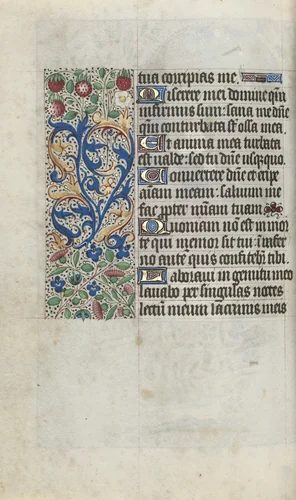 tua corripias me.
Miserere mei domine qm̄
infirmus sum: sana me dñe
qm̄ conturbata st̄ ossa mea.
Et anima mea turbata
est valde: sed tu dñe usquequo.
Convertere dñe et eripe
aīam meam: saluum me
fac ꝓpter mīam tuam.
Quoniam nō est in mor
te qui memor sit tui: ī īfer
no autē quis confitebr̄ tibi.
Laboraui in gemitu meo
lauabo per singulas noctes
lectum meum lacrimis meis